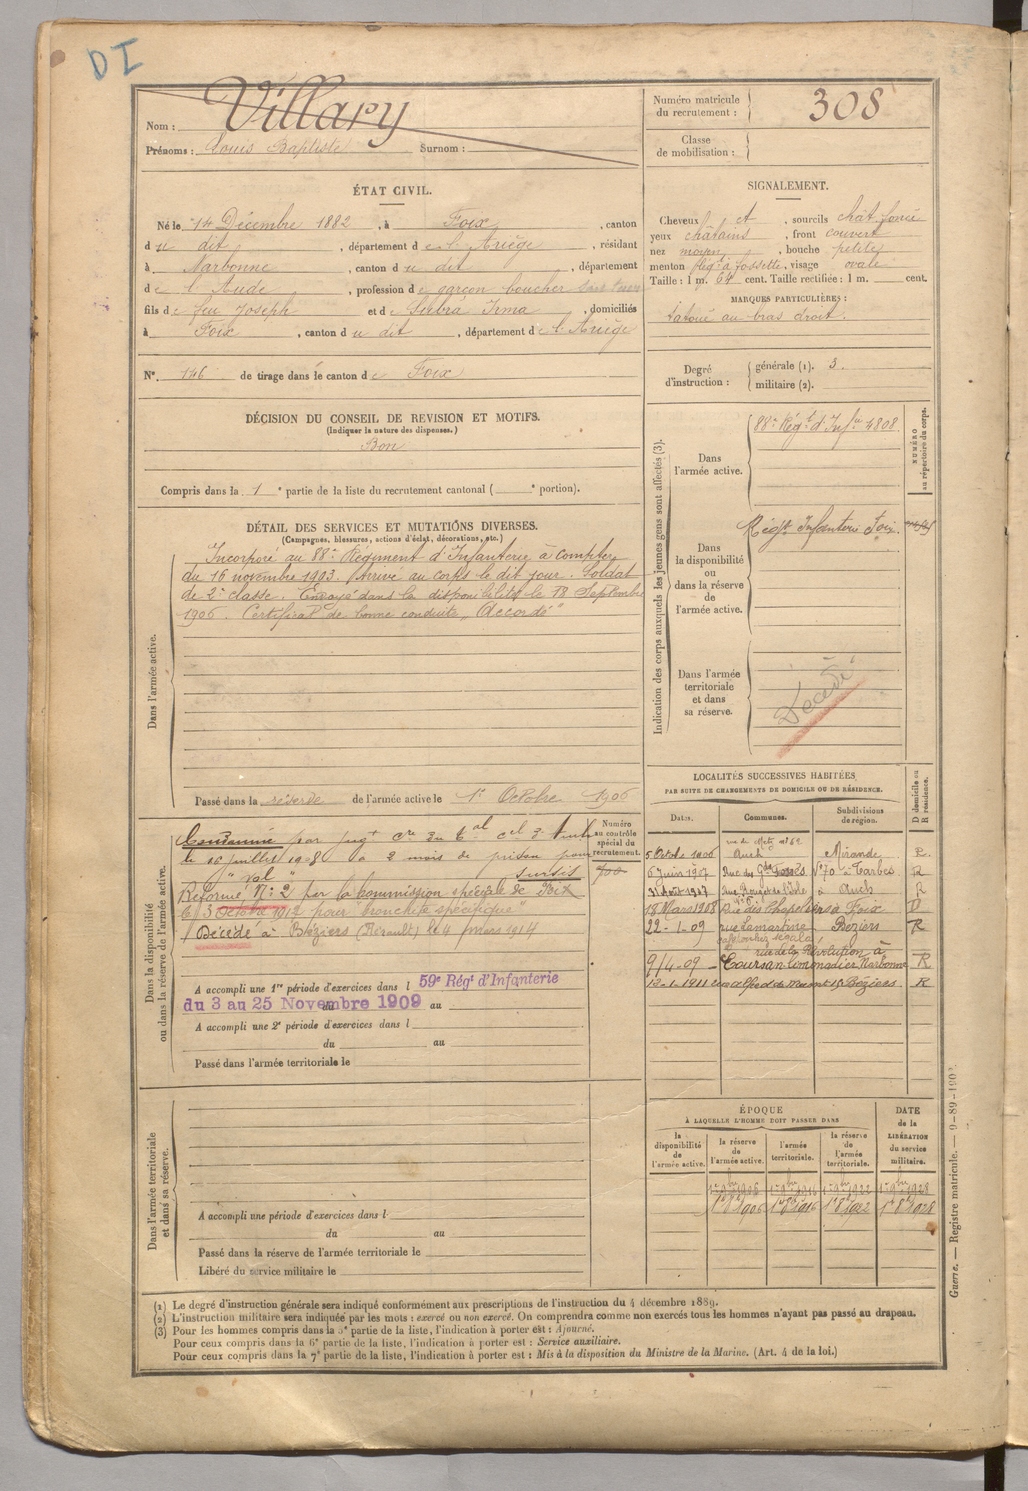 DI
Nom : Villary
Prénoms : Louis Baptiste Surnom :
Numéro matricule du recrutement : 308
Classe de mobilisation :
ÉTAT CIVIL.
Né le 14 Décembre 1882, à Foix, canton
du dit, département de l'Ariège, résidant
à Narbonne, canton du dit, département
de l'Aude, profession de garçon boucher
fils de feu Joseph et de Subra Irma, domiciliés
à Foix, canton du dit, département de l'Ariège
N° 146 de tirage dans le canton de Foix
SIGNALEMENT.
Cheveux et, sourcils chât foncé
yeux châtains, front couvert
nez moyen, bouche petite
menton à fossette, visage ovale
Taille : 1 m. 64 cent. Taille rectifiée : 1 m. cent.
MARQUES PARTICULIÈRES :
tatoué au bras droit.
Degré d'instruction : générale (1). 3.
militaire (2).
DÉCISION DU CONSEIL DE REVISION ET MOTIFS.
(Indiquer la nature des dispenses.)
Bon
Compris dans la 1e partie de la liste du recrutement cantonal ( e portion).
DÉTAIL DES SERVICES ET MUTATIONS DIVERSES.
(Campagnes, blessures, actions d'éclat, décorations, etc.)
Dans l'armée active.
Incorporé au 88e Régiment d'Infanterie à compter
du 16 novembre 1903. Arrivé au corps le dit jour. Soldat
de 2e classe. Envoyé dans la disponibilité le 18 Septembre
1906 Certificat de bonne conduite "Accordé"
Passé dans la réserve de l'armée active le 1er Octobre 1906
Indication des corps auxquels les jeunes gens sont affectés (3).
NUMÉRO au répertoire du corps.
Dans l'armée active.
88e Régt d'Infie 4808
Dans la disponibilité ou dans la réserve de l'armée active.
Régt Infanterie Foix
Dans l'armée territoriale et dans sa réserve.
Décédé
Dans la disponibilité ou dans la réserve de l'armée active.
Numéro au contrôle spécial du recrutement.
700
Condamné par jugt
le 16 juillet 1908 à 2 mois de prison pour
"vol" sursis
Réformé N° 2 par la commission spéciale de
le 3 Octobre 1912 pour "bronchite spécifique"
Décédé à Béziers (Hérault) le 4 mars 1914
A accompli une 1re période d'exercices dans l 59e Régt d'Infanterie
du 3 au 25 Novembre 1909 au
A accompli une 2e période d'exercices dans l
du au
Passé dans l'armée territoriale le
LOCALITÉS SUCCESSIVES HABITÉES
PAR SUITE DE CHANGEMENTS DE DOMICILE OU DE RÉSIDENCE.
Dates. Communes. Subdivisions de région. D domicile ou R résidence.
5 Octobre 1906 Auch Mirande R.
6 Juin 1907 Rue des N° 70 à Tarbes R
31 Août 1907 Rue Rouget de l'Isle à Auch R
18 Mars 1908 Rue des Chapeliers à Foix D
22-1-09 rue Lamartine Béziers R
rue de la Révolution à
9/4-09 Coursan limonadier Narbonne R
1911 rue Alfred de Musset 15 Béziers R
ÉPOQUE
À LAQUELLE L'HOMME DOIT PASSER DANS
la disponibilité de l'armée active.
la réserve de l'armée active.
l'armée territoriale.
la réserve de l'armée territoriale.
DATE de la LIBÉRATION du service militaire.
1er 9bre 1906 1er 9bre 1916 1er 9bre 1922 1er 9bre 1928
1er 8bre 1906 1er 8bre 1916 1er 8bre 1922 1er 8bre 1928
Dans l'armée territoriale et dans sa réserve.
A accompli une période d'exercices dans l
du au
Passé dans la réserve de l'armée territoriale le
Libéré du service militaire le
(1) Le degré d'instruction générale sera indiqué conformément aux prescriptions de l'instruction du 4 décembre 1889.
(2) L'instruction militaire sera indiquée par les mots : exercé ou non exercé. On comprendra comme non exercés tous les hommes n'ayant pas passé au drapeau.
(3) Pour les hommes compris dans la 5e partie de la liste, l'indication à porter est : Ajourné.
Pour ceux compris dans la 6e partie de la liste, l'indication à porter est : Service auxiliaire.
Pour ceux compris dans la 7e partie de la liste, l'indication à porter est : Mis à la disposition du Ministre de la Marine. (Art. 4 de la loi.)
Guerre. — Registre matricule. — 9-89-1902.